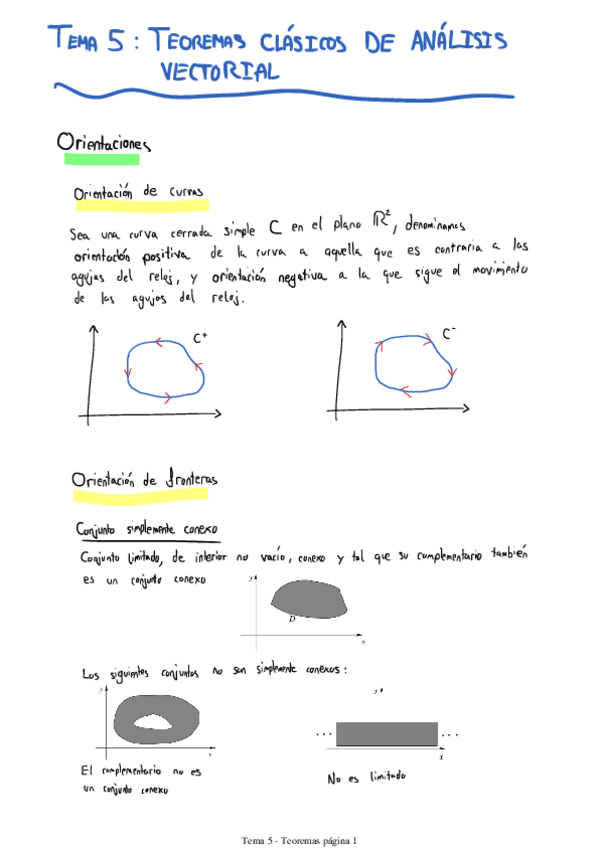 TEMA 5: TEOREMAS CLÁSICOS DE ANÁLISIS
VECTORIAL
Orientaciones
Orientación de curvas
Sea una curva cerrada simple C en el plano ℝ², denominamos
orientación positiva de la curva a aquella que es contraria a las
agujas del reloj, y orientación negativa a la que sigue el movimiento
de las agujas del reloj.
C⁺
C⁻
Orientación de fronteras
Conjunto simplemente conexo
Conjunto limitado, de interior no vacío, conexo y tal que su complementario también
es un conjunto conexo
y
D
x
Los siguientes conjuntos no son simplemente conexos:
y
x
y
... ...
x
El complementario no es
un conjunto conexo
No es limitado
Tema 5 - Teoremas página 1